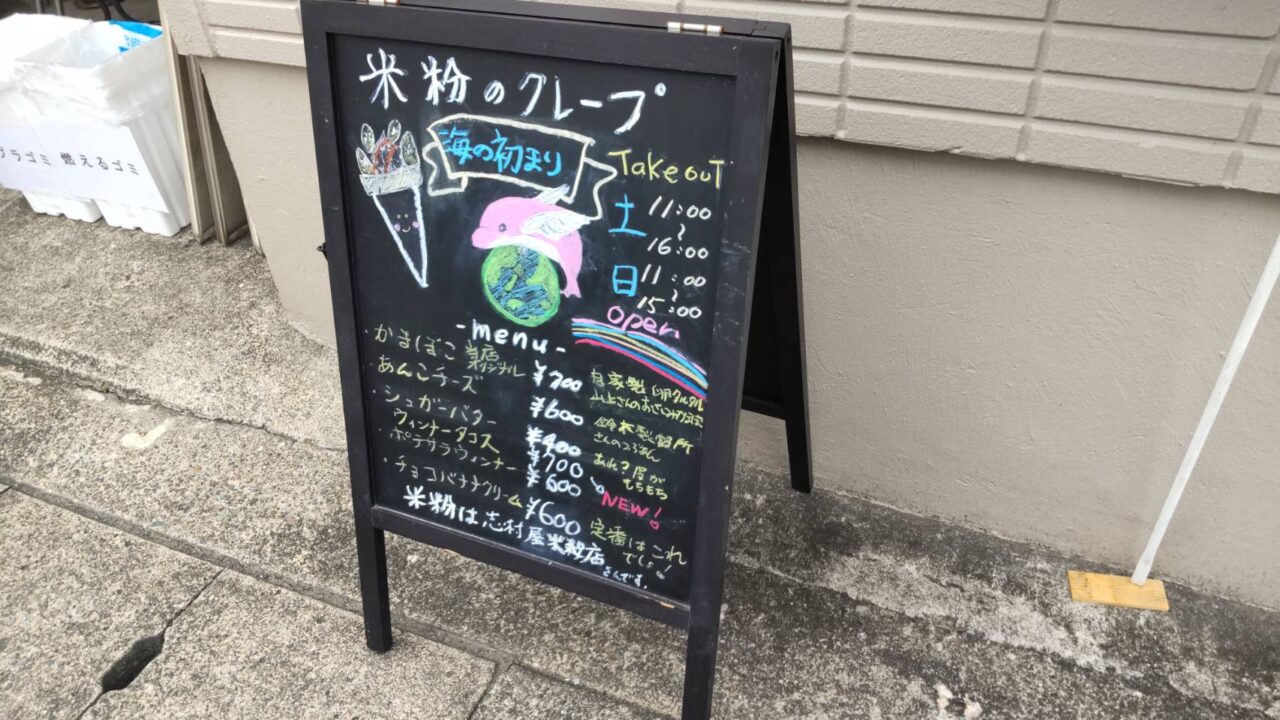 米粉のクレープ
海の初まり
Take out
土 11:00
~
16:00
日 11:00
~
15:00
open
-menu-
・かまぼこ 当店オリジナル ¥700 自家製卵タルタル
・あんこチーズ ¥600 鈴木製餡所さんのつぶあん
・シュガーバター ¥400 あれ?皮がもちもち
・ウィンナータコス ¥700
・ポテサラウィンナー ¥600 NEW!
・チョコバナナクリーム ¥600 定番はこれでしょ!
米粉は志村屋米穀店さんです。
プラゴミ 燃えるゴミ